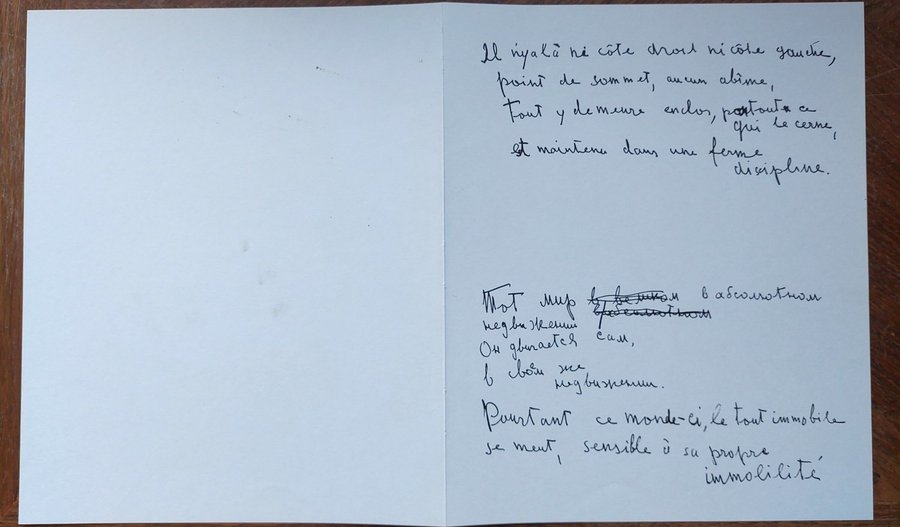 Il n'y a là ni côté droit ni côté gauche,
point de sommet, aucun abîme,
Tout y demeure enclos, partout ce
qui le cerne,
et maintenu dans une ferme
discipline.
Тот мир в абсолютном
недвижении
Он движется сам,
в своём же
недвижении.
Pourtant ce monde-ci, le tout immobile
se meut, sensible à sa propre
immobilité